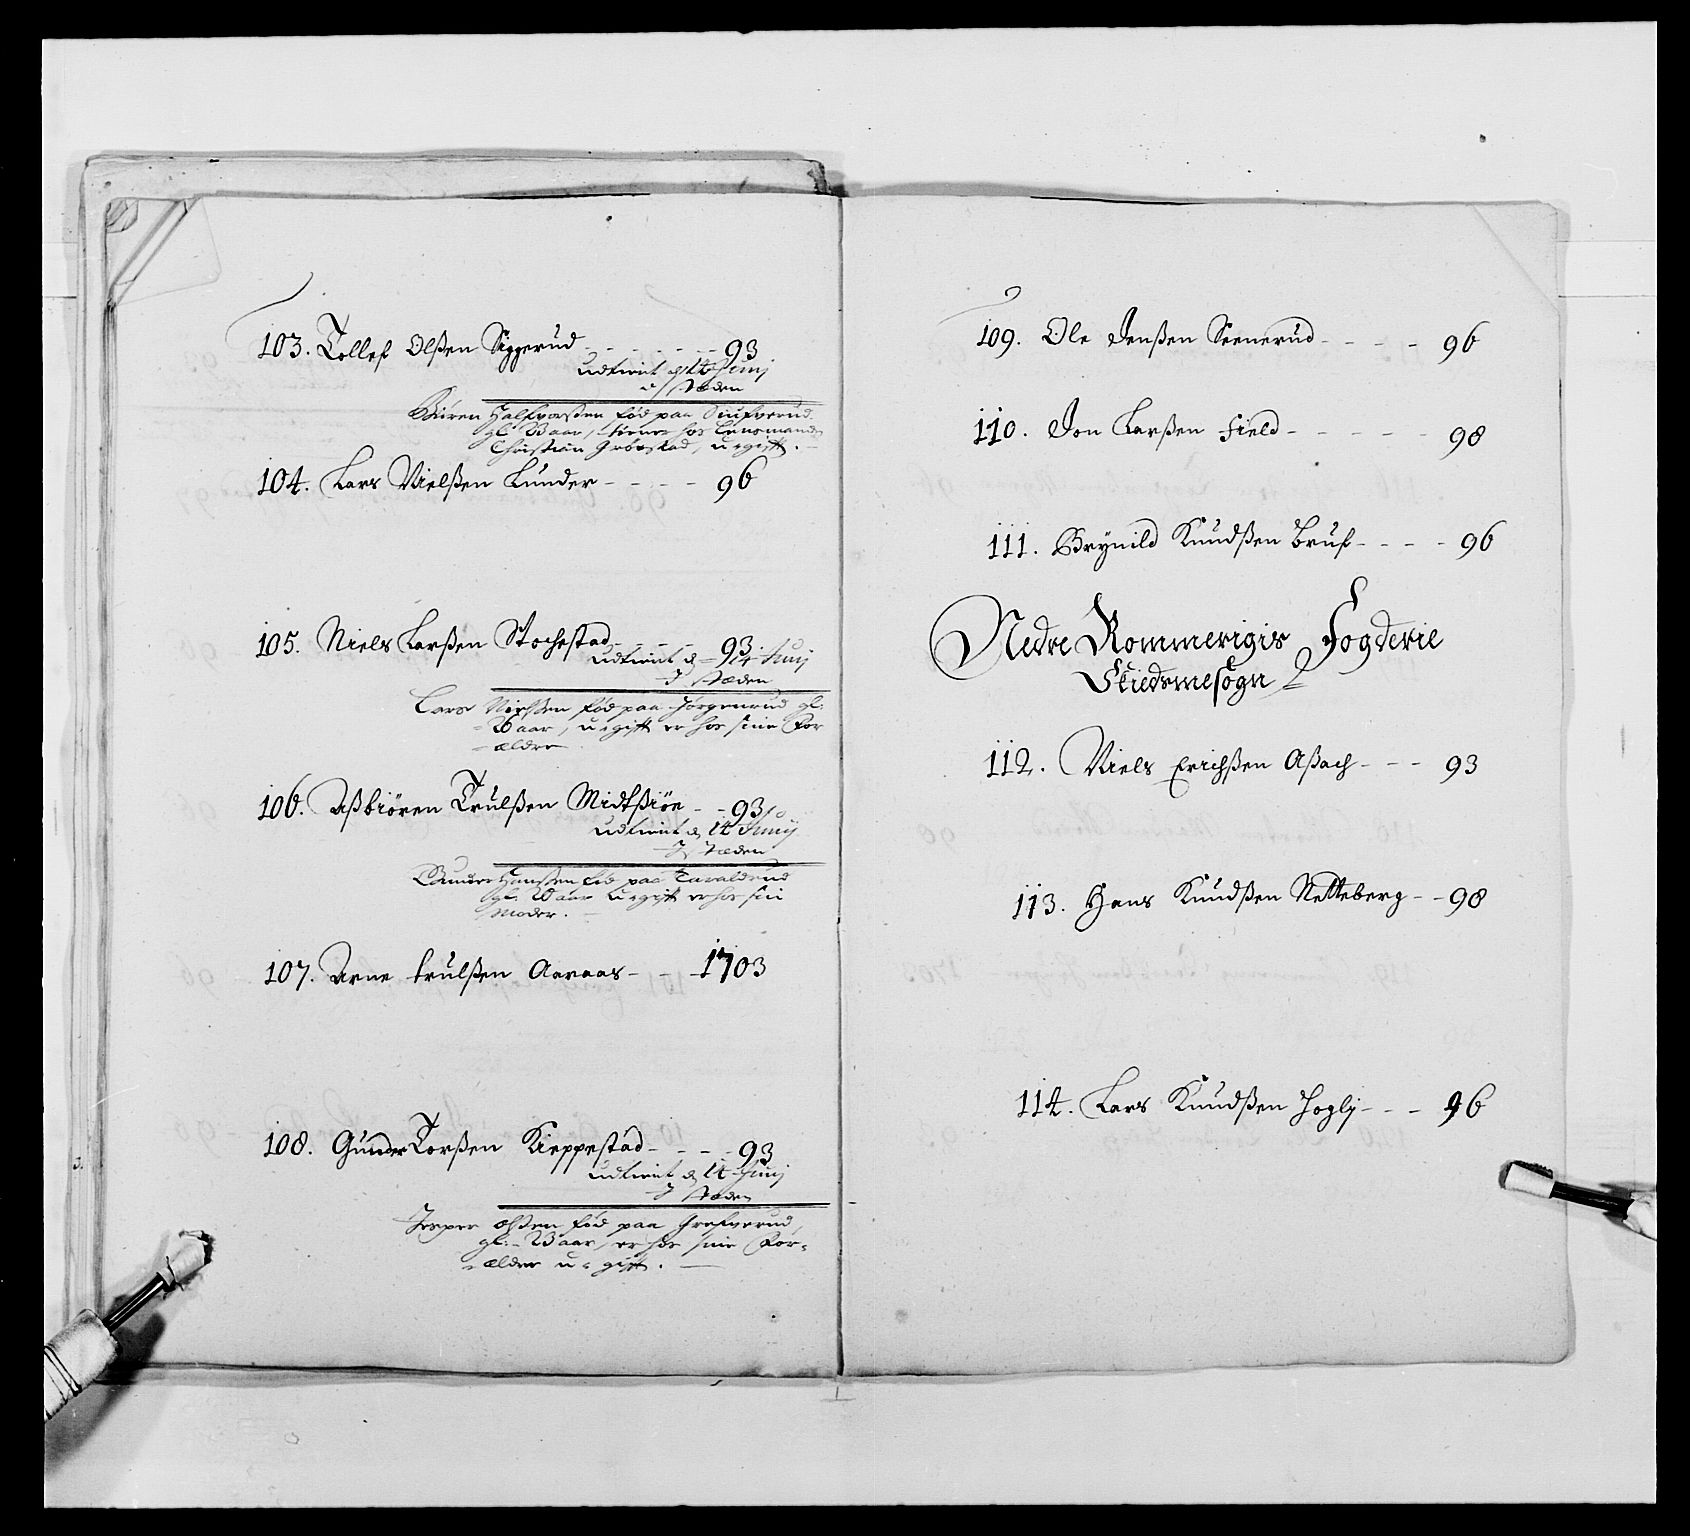 103. Tollef Olßen Siggerud - - - - - 93
udtient d 14 Junij
i Stæden
Biören Halfvorßen fød paa
gl. Aar, tiener hos Lensmanden
Christian Gröestad, u-gift.
104. Lars Nielßen Lunder - - - - 96
105. Niels Larßen Stochestad - - - 93
udtient d 14 Junij
I Stæden
Lars Nielßen fød paa Jörgenrud gl:
Aar, u-gift er hos sine For
-ældre
106. Aßbiören Trulßen Midtsiöe - - 93
udtient d 14 Junij
I Stæden
Gunder Hanßen fød paa Taraldrud
gl. Aar u-gift er hos sin
Moder.
107. Arne trulßen Aaraas - - - 1703
108. Gunder Torßen Kieppestad - - - - 93
udtient d 14 Junij
I Stæden
Jesper Olßen fød paa Grefverud,
gl:- Aar, er hos sine For-
-ældre u-gift.
109. Ole Jenßen Steenerud - - - - 96
110. Jon Larßen Field - - - - - - 98
111. Brynild Knudßen Bruß - - - - 96
Nedre Rommerigis Fogderie
Skiedsmesogn
112. Niels Erichßen Aßach - - - 93
113. Hans Knudßen Netteberg - - 98
114. Lars Knudßen Hoglj - - - 96